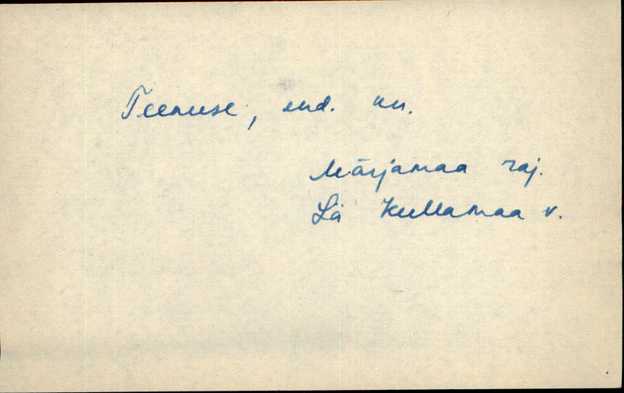 Teenuse, end. km.
Märjamaa raj.
Lä Kullamaa v.